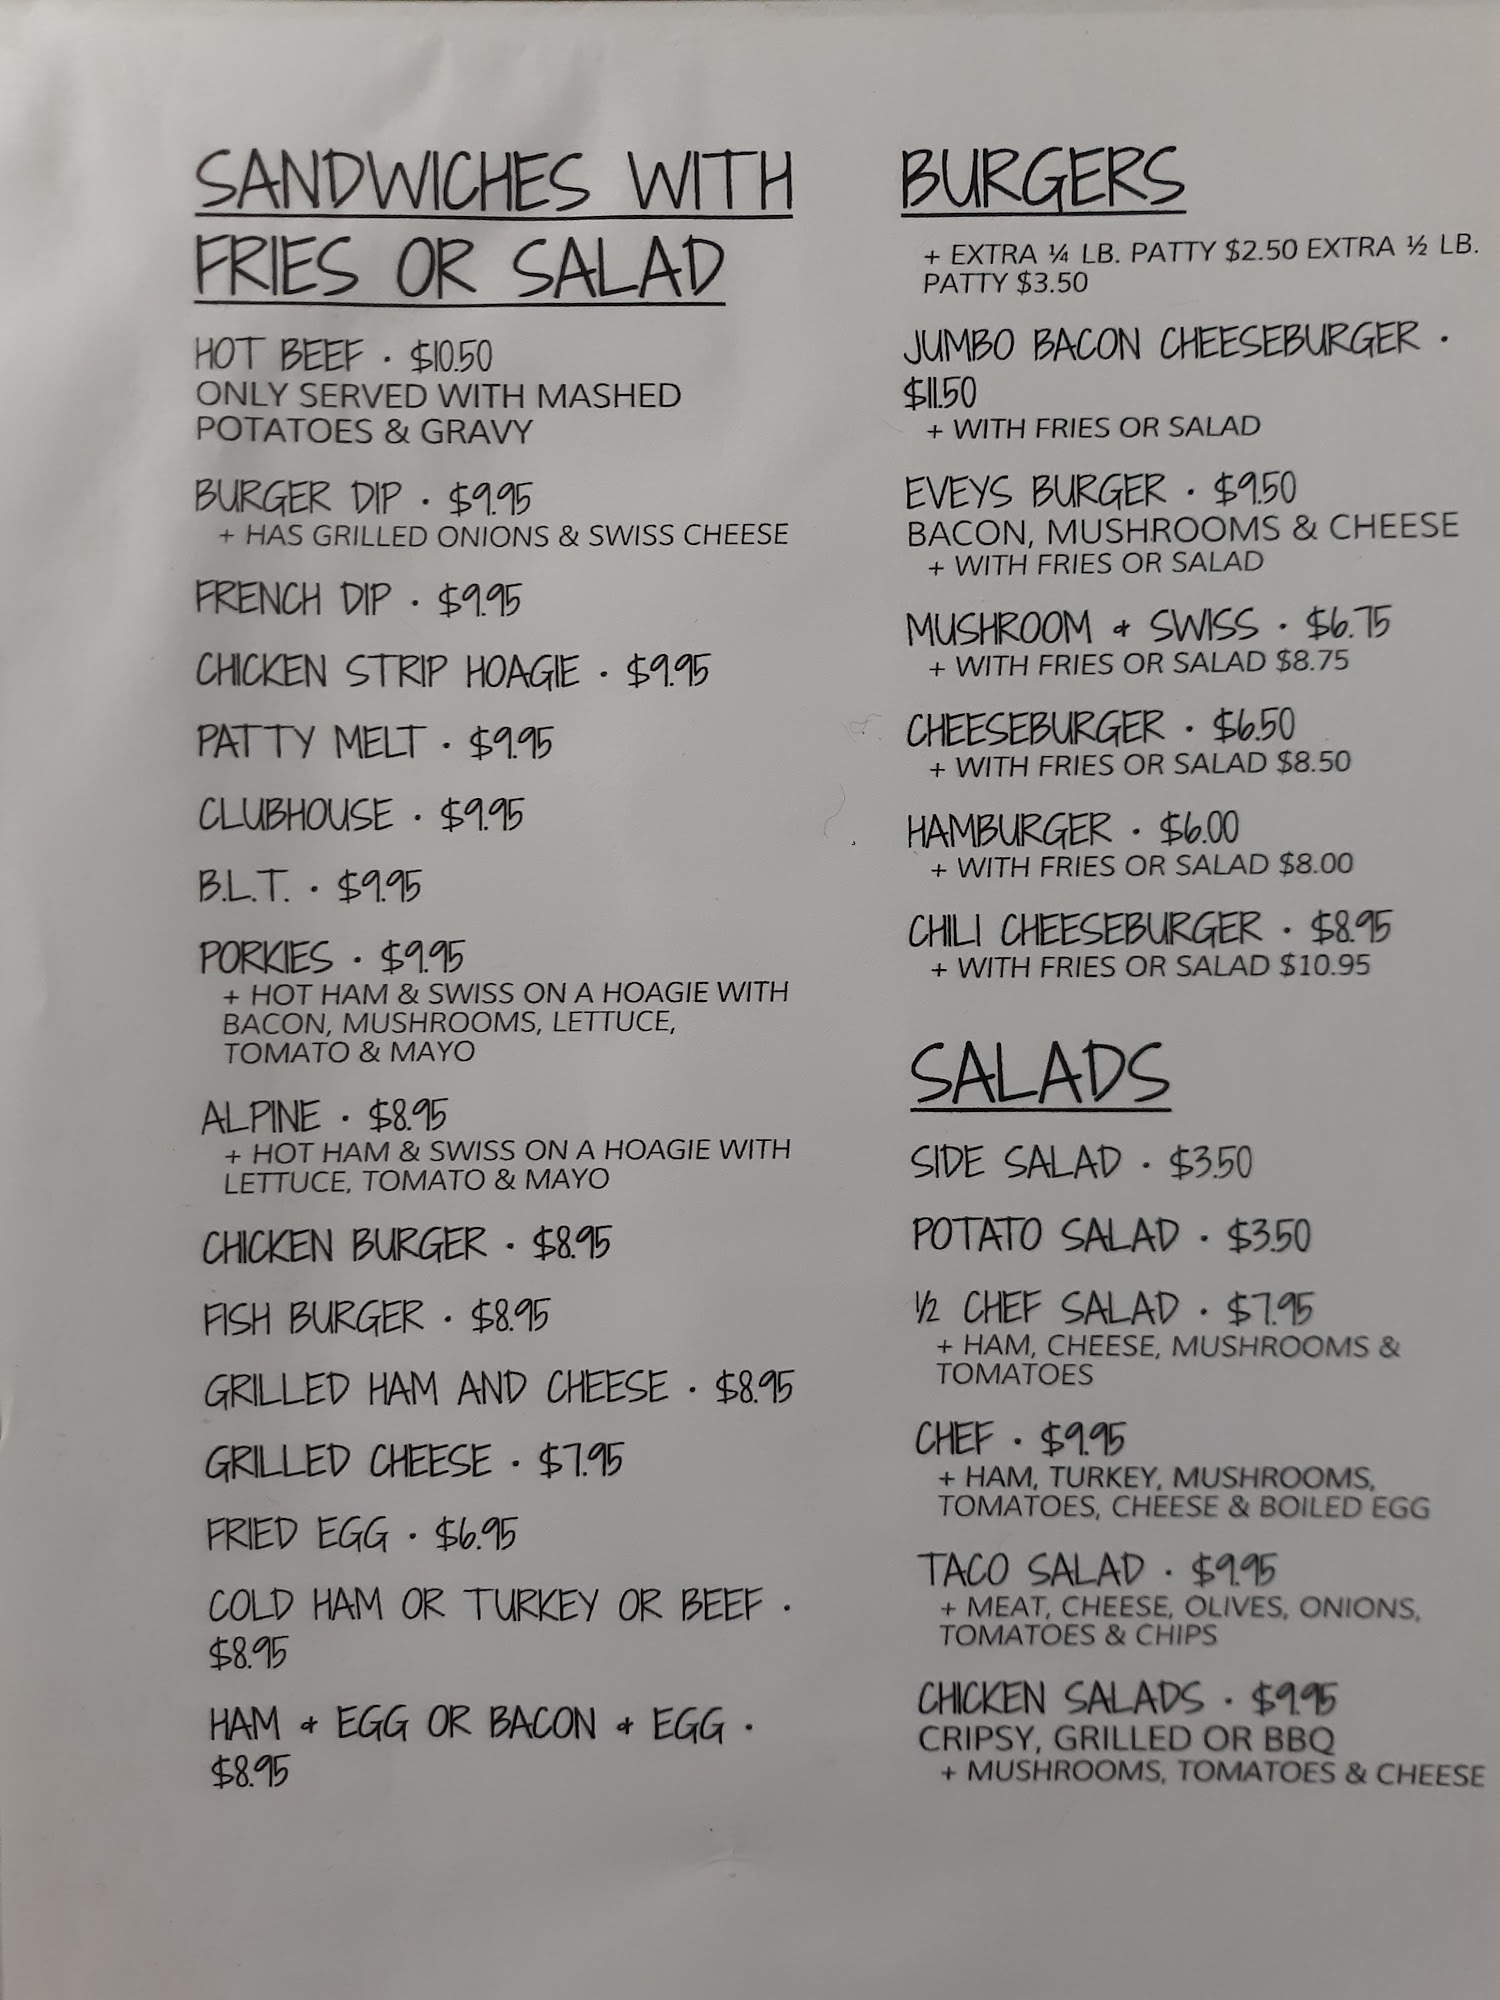 SANDWICHES WITH
FRIES OR SALAD
HOT BEEF · $10.50
ONLY SERVED WITH MASHED
POTATOES & GRAVY
BURGER DIP · $9.95
+ HAS GRILLED ONIONS & SWISS CHEESE
FRENCH DIP · $9.95
CHICKEN STRIP HOAGIE · $9.95
PATTY MELT · $9.95
CLUBHOUSE · $9.95
B.L.T. · $9.95
PORKIES · $9.95
+ HOT HAM & SWISS ON A HOAGIE WITH
BACON, MUSHROOMS, LETTUCE,
TOMATO & MAYO
ALPINE · $8.95
+ HOT HAM & SWISS ON A HOAGIE WITH
LETTUCE, TOMATO & MAYO
CHICKEN BURGER · $8.95
FISH BURGER · $8.95
GRILLED HAM AND CHEESE · $8.95
GRILLED CHEESE · $7.95
FRIED EGG · $6.95
COLD HAM OR TURKEY OR BEEF ·
$8.95
HAM & EGG OR BACON & EGG ·
$8.95
BURGERS
+ EXTRA ¼ LB. PATTY $2.50 EXTRA ½ LB.
PATTY $3.50
JUMBO BACON CHEESEBURGER ·
$11.50
+ WITH FRIES OR SALAD
EVEYS BURGER · $9.50
BACON, MUSHROOMS & CHEESE
+ WITH FRIES OR SALAD
MUSHROOM & SWISS · $6.75
+ WITH FRIES OR SALAD $8.75
CHEESEBURGER · $6.50
+ WITH FRIES OR SALAD $8.50
HAMBURGER · $6.00
+ WITH FRIES OR SALAD $8.00
CHILI CHEESEBURGER · $8.95
+ WITH FRIES OR SALAD $10.95
SALADS
SIDE SALAD · $3.50
POTATO SALAD · $3.50
½ CHEF SALAD · $7.95
+ HAM, CHEESE, MUSHROOMS &
TOMATOES
CHEF · $9.95
+ HAM, TURKEY, MUSHROOMS,
TOMATOES, CHEESE & BOILED EGG
TACO SALAD · $9.95
+ MEAT, CHEESE, OLIVES, ONIONS,
TOMATOES & CHIPS
CHICKEN SALADS · $9.95
CRIPSY, GRILLED OR BBQ
+ MUSHROOMS, TOMATOES & CHEESE